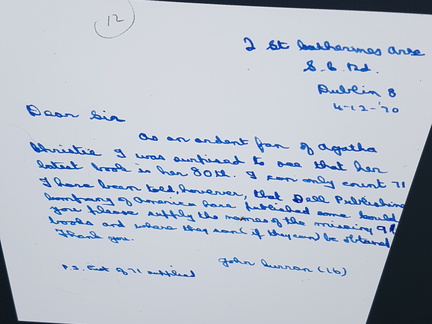 12
2 St Catherines Ave
S.C. Rd.
Dublin 8
4-12-'70
Dear Sir
As an ardent fan of Agatha
Christie I was surprised to see that her
latest book is her 80th. I can only count 71
I have been told, however, that Dell Publishing
Company of America have published some. Could
you please supply the names of the missing 9
books and where they can (if they can) be obtained
Thank you.
John Curran (16)
P.S. List of 71 supplied